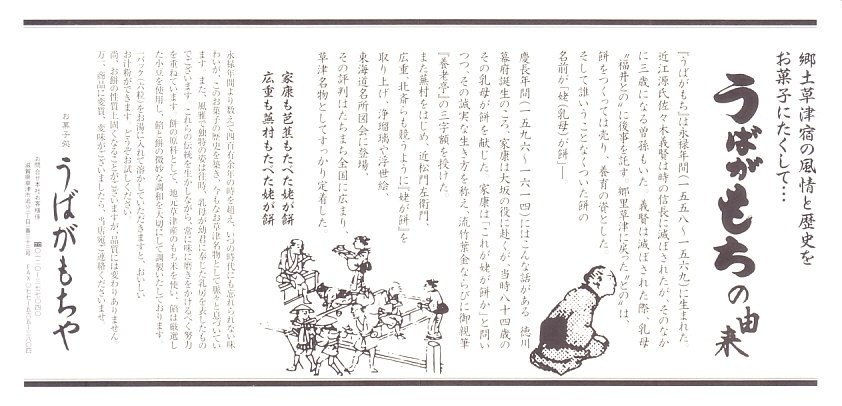 郷土草津宿の風情と歴史を
お菓子にたくして…
うばがもちの由来
『うばがもち』は永禄年間(一五五八〜一五六九)に生まれた。
近江源氏佐々木義賢は時の信長に滅ぼされたが、そのなか
に三歳になる曽孫もいた。義賢は滅ぼされた際、乳母
“福井との”に後事を託す。郷里草津に戻った“との”は、
餅をつくっては売り、養育の資とした。
そして誰いうことなくついた餅の
名前が「姥(乳母)が餅」──。
慶長年間(一五九六〜一六一四)にはこんな話がある。徳川
幕府誕生のころ、家康は大坂の役に赴くが、当時八十四歳の
その乳母が餅を献じた。家康は「これが姥が餅か」と問い
つつ、その誠実な生き方を称え、流竹葉金ならびに御親筆
『養老亭』の三字額を授けた。
また蕪村をはじめ、近松門左衛門、
広重、北斎らも競うように『姥が餅』を
取り上げ、浄瑠璃や浮世絵、
東海道名所図会に登場、
その評判はたちまち全国に広まり、
草津名物としてすっかり定着した。
家康も芭蕉もたべた姥が餅
広重も蕪村もたべた姥が餅
永禄年間より数えて四百有余年の時を超え、いつの時代にも忘れられない味
わいが、このお菓子の歴史を築き、今もなお草津名物として脈々と息づいてい
ます。また、風雅で独特の姿は往時、乳母が幼君に奉じた乳房を表したもの
でございます。これらの伝統を生かしながら、常に味に磨きをかけるべく努力
を重ねています。餅の原料として、地元草津産のもち米を使い、餡は厳選し
た小豆を使用し、餡と餅の微妙な調和を大切にして調製いたしております。
一パック(六粒)をお湯に入れて溶かしていただきますと、おいしい
お汁粉ができます。どうぞお試しください。
尚、お餅の性質上固くなることがございますが、品質には変わりありません。
万一、商品に変質、変味がございましたら、当店宛ご連絡くださいませ。
お菓子処
うばがもちや
お問合せ 本社お客様係